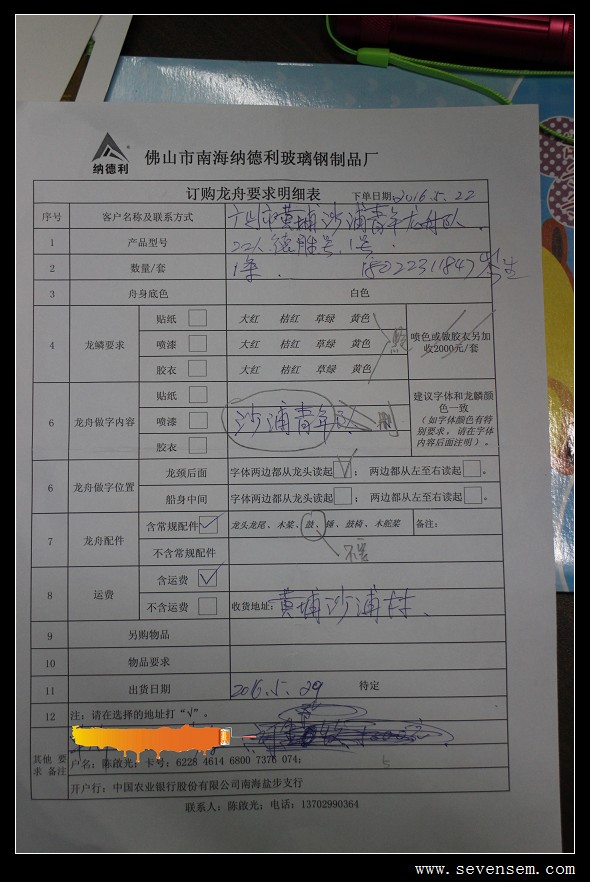 纳德利
佛山市南海纳德利玻璃钢制品厂
订购龙舟要求明细表 下单日期: 2016.5.22
序号 客户名称及联系方式 广州市黄埔沙浦青年龙舟队.
1 产品型号 22人德胜号,1号.
2 数量/套 1条. 18022311847
3 舟身底色 白色
4 龙鳞要求 贴纸 大红 桔红 草绿 黄色
喷漆 大红 桔红 草绿 黄色
胶衣 大红 桔红 草绿 黄色
喷色或做胶衣另加
收2000元/套
6 龙舟做字内容 贴纸
喷漆 沙浦青年
胶衣
建议字体和龙鳞颜
色一致
(如字体颜色有特
别要求,请在字体
内容后面注明)。
6 龙舟做字位置 龙颈后面 字体两边都从龙头读起√; 两边都从左至右读起 。
船身中间 字体两边都从龙头读起 ; 两边都从左至右读起 。
7 龙舟配件 含常规配件√ 龙头龙尾、木桨、鼓、锤、鼓椅、木舵桨 备注:
不含常规配件 不要
8 运费 含运费 √
不含运费 收货地址: 黄埔沙浦村、
9 另购物品
10 物品要求
11 出货日期 2016.5.29 待定
12 注:请在选择的地址打“√”。
其他要求备注
户名:陈啟光;卡号:6228 4614 6800 7376 074;
5
开户行:中国农业银行股份有限公司南海盐步支行
联系人:陈啟光;电话:13702990364
www.sevensem.com